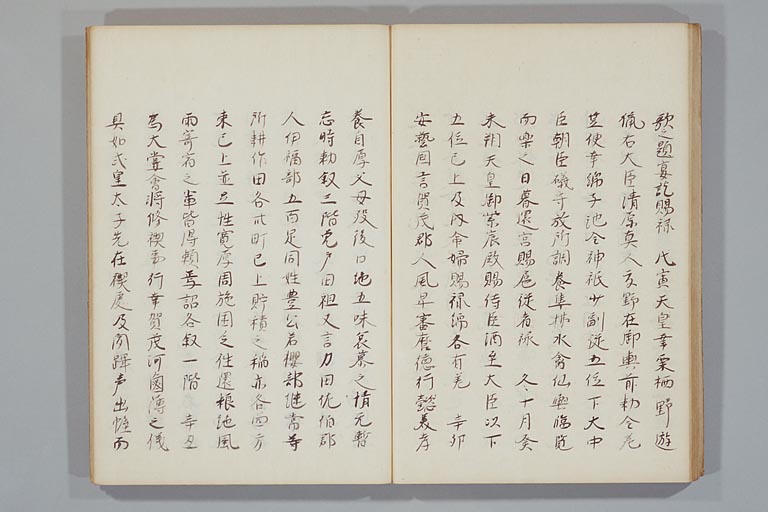 歌之題宴訖賜禄 戊寅天皇幸栗栖野遊
猟右大臣清原真人夏野在御輿前勅令
其便幸綿子池令神祇少副従五位下大中
臣朝臣礒守放所調養隼拂水禽仙輿臨覧
而楽之日暮還宮賜扈従者禄 冬十月癸
未朔天皇御紫宸殿賜侍臣酒至大臣以下
五位已上及内命婦賜禄綿各有差 辛卯
安藝国言賀茂郡人風早審麿徳行懿美孝
養自厚父母没後口絶五味哀慕之情无暫
忘時勅叙三階免戸田租又言力田佐伯郡
人伊福部五百足同姓豊公若櫻部継常等
所耕作田各卅町已上貯積之稲亦各四万
束已上並立性寛厚周施困乏往還粮絶風
雨寄宿之輩皆得頼焉詔各叙一階 辛丑
為大嘗會将修禊事行幸賀茂河鹵薄之儀
具如式皇太子先在禊處及聞蹕声出幄而